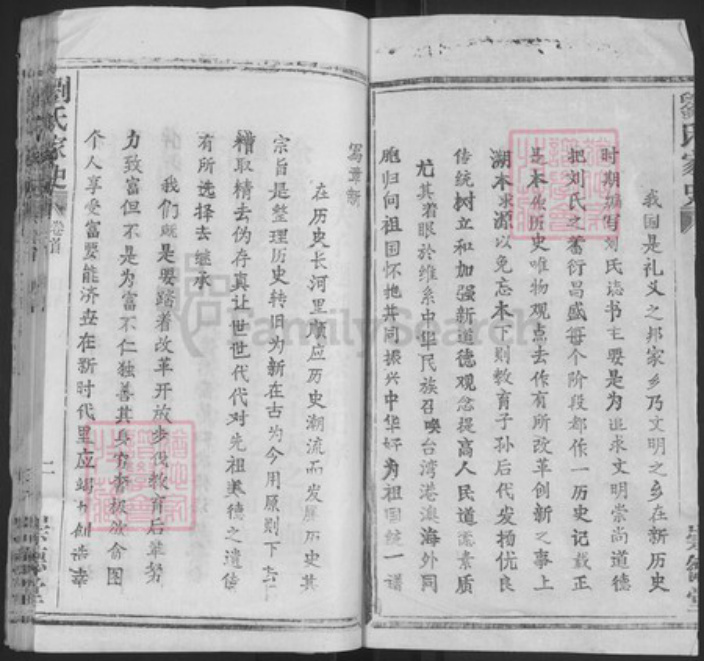 劉氏家史
崇德堂
我国是礼义之邦家乡乃文明之乡在新历史
时期编写刘氏谱书主要是为追求文明崇尚道德
把刘氏之蕃衍昌盛每个阶段都作一历史记载正
是本依历史唯物观点去作有所改革创新之事上
溯木求源以免忘本下则教育子孙后代发扬优良
传统树立和加强新道德观念提高人民道德素质
尤其着眼於维系中华民族召唤台湾港澳海外同
胞归向祖国怀抱共同振兴中华好为祖国统一谱
写章新
在历史长河里顺应历史潮流而发展历史其
宗旨是整理历史转旧为新在古为今用原则下去
糟取精去伪存真让世世代代对先祖美德之遗传
有所选择去继承
我们既是要踏着改革开放步伐教育后辈努
力致富但不是为富不仁独善其身
个人享受富要能济在新时代里应竭力创造幸
劉氏家史
卷首
二
崇德堂
FamilySearch